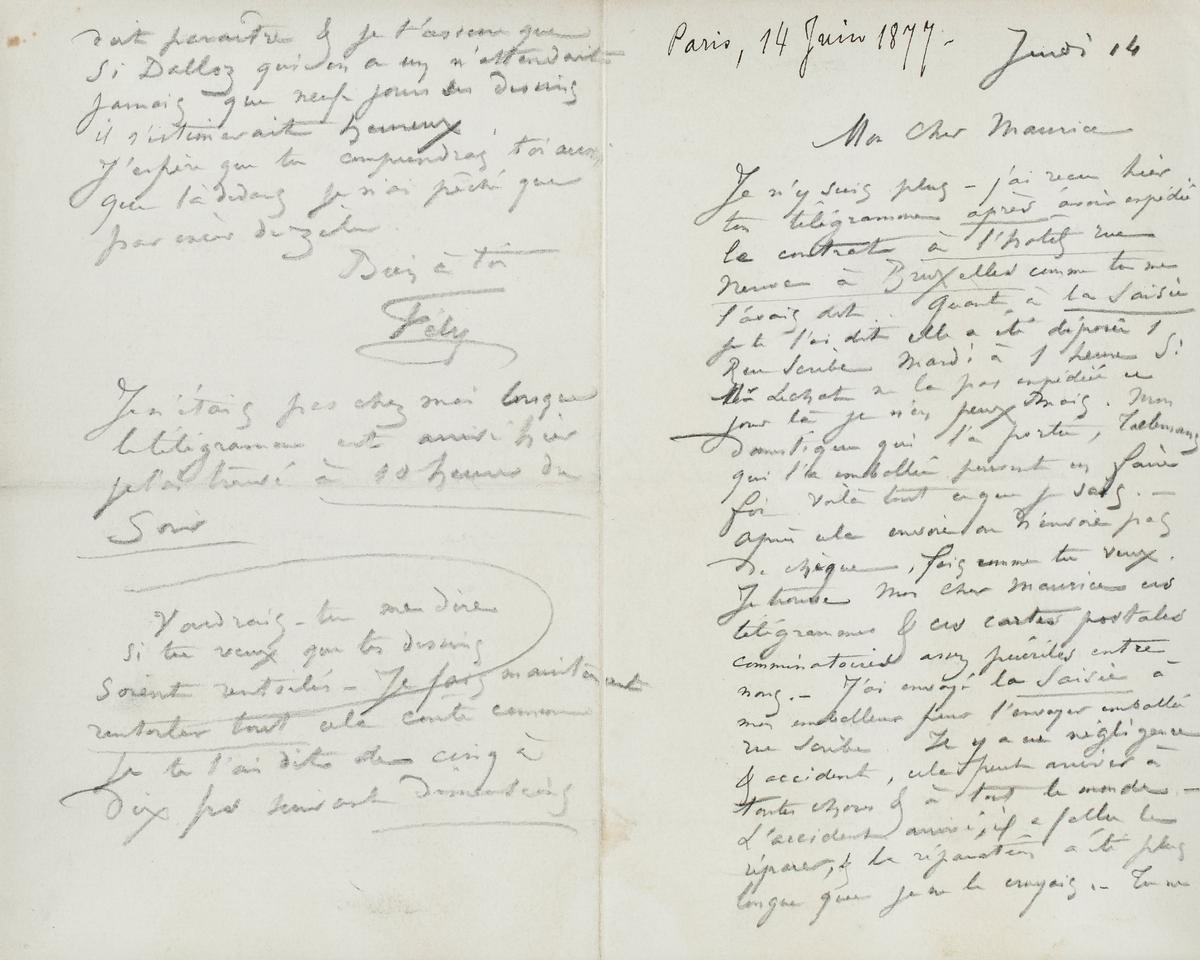 Paris, 14 Juin 1877.-
Jeudi 14
Mon cher Maurice
Je n'y suis plus – j'ai reçu hier
ton télégramme après avoir expédié
le contrat à l'hotel rue
Neuve à Bruxelles comme tu me
l'avais dit. Quant à la Saisie
je te l'ai dit elle a été déposée 1
Rue Scribe Mardi à 1 heure Si
Lechat ne la pas expédiée ce
jour là je n'en peux Mais. Mon
domestique qui l'a portée,
qui l'a emballée peuvent en faire
foi voilà tout ce que je sais. –
Après cela envoie ou n'envoie pas
de chèque, fais comme tu veux.
Je trouve Mon cher Maurice ces
télégrammes & ces cartes postales
comminatoires assez puériles entre
nous. – J'ai envoyé la Saisie à
mon emballeur pour l'envoyer emballée
rue Scribe. Il y a eu négligence
& accident, cela peut arriver à
toutes choses & à tout le monde –
L'accident arrivé, il a fallu le
réparer, & la réparation a été plus
longue que je ne le croyais. – Tu me
doit paraître & je t'assure que
Si Dalloz qui en a vu n'attendait
jamais que neuf jours les dessins
il s'estimerait heureux
J'espère que tu comprendras, toi aussi,
que là dedans je n'ai péché que
par excès de zèle.
Bien à toi
Fély
Je n'étais pas chez moi lorsque
le télégramme est arrivé hier
je l'ai trouvé à 10 heures du
Soir
Voudrais-tu me dire
Si tu veux que tes dessins
Soient rentoilés – Je fais maintenant
rentoiler tout cela coûte comme
Je te l'ai dit de cinq à
Dix frs suivant Dimensions